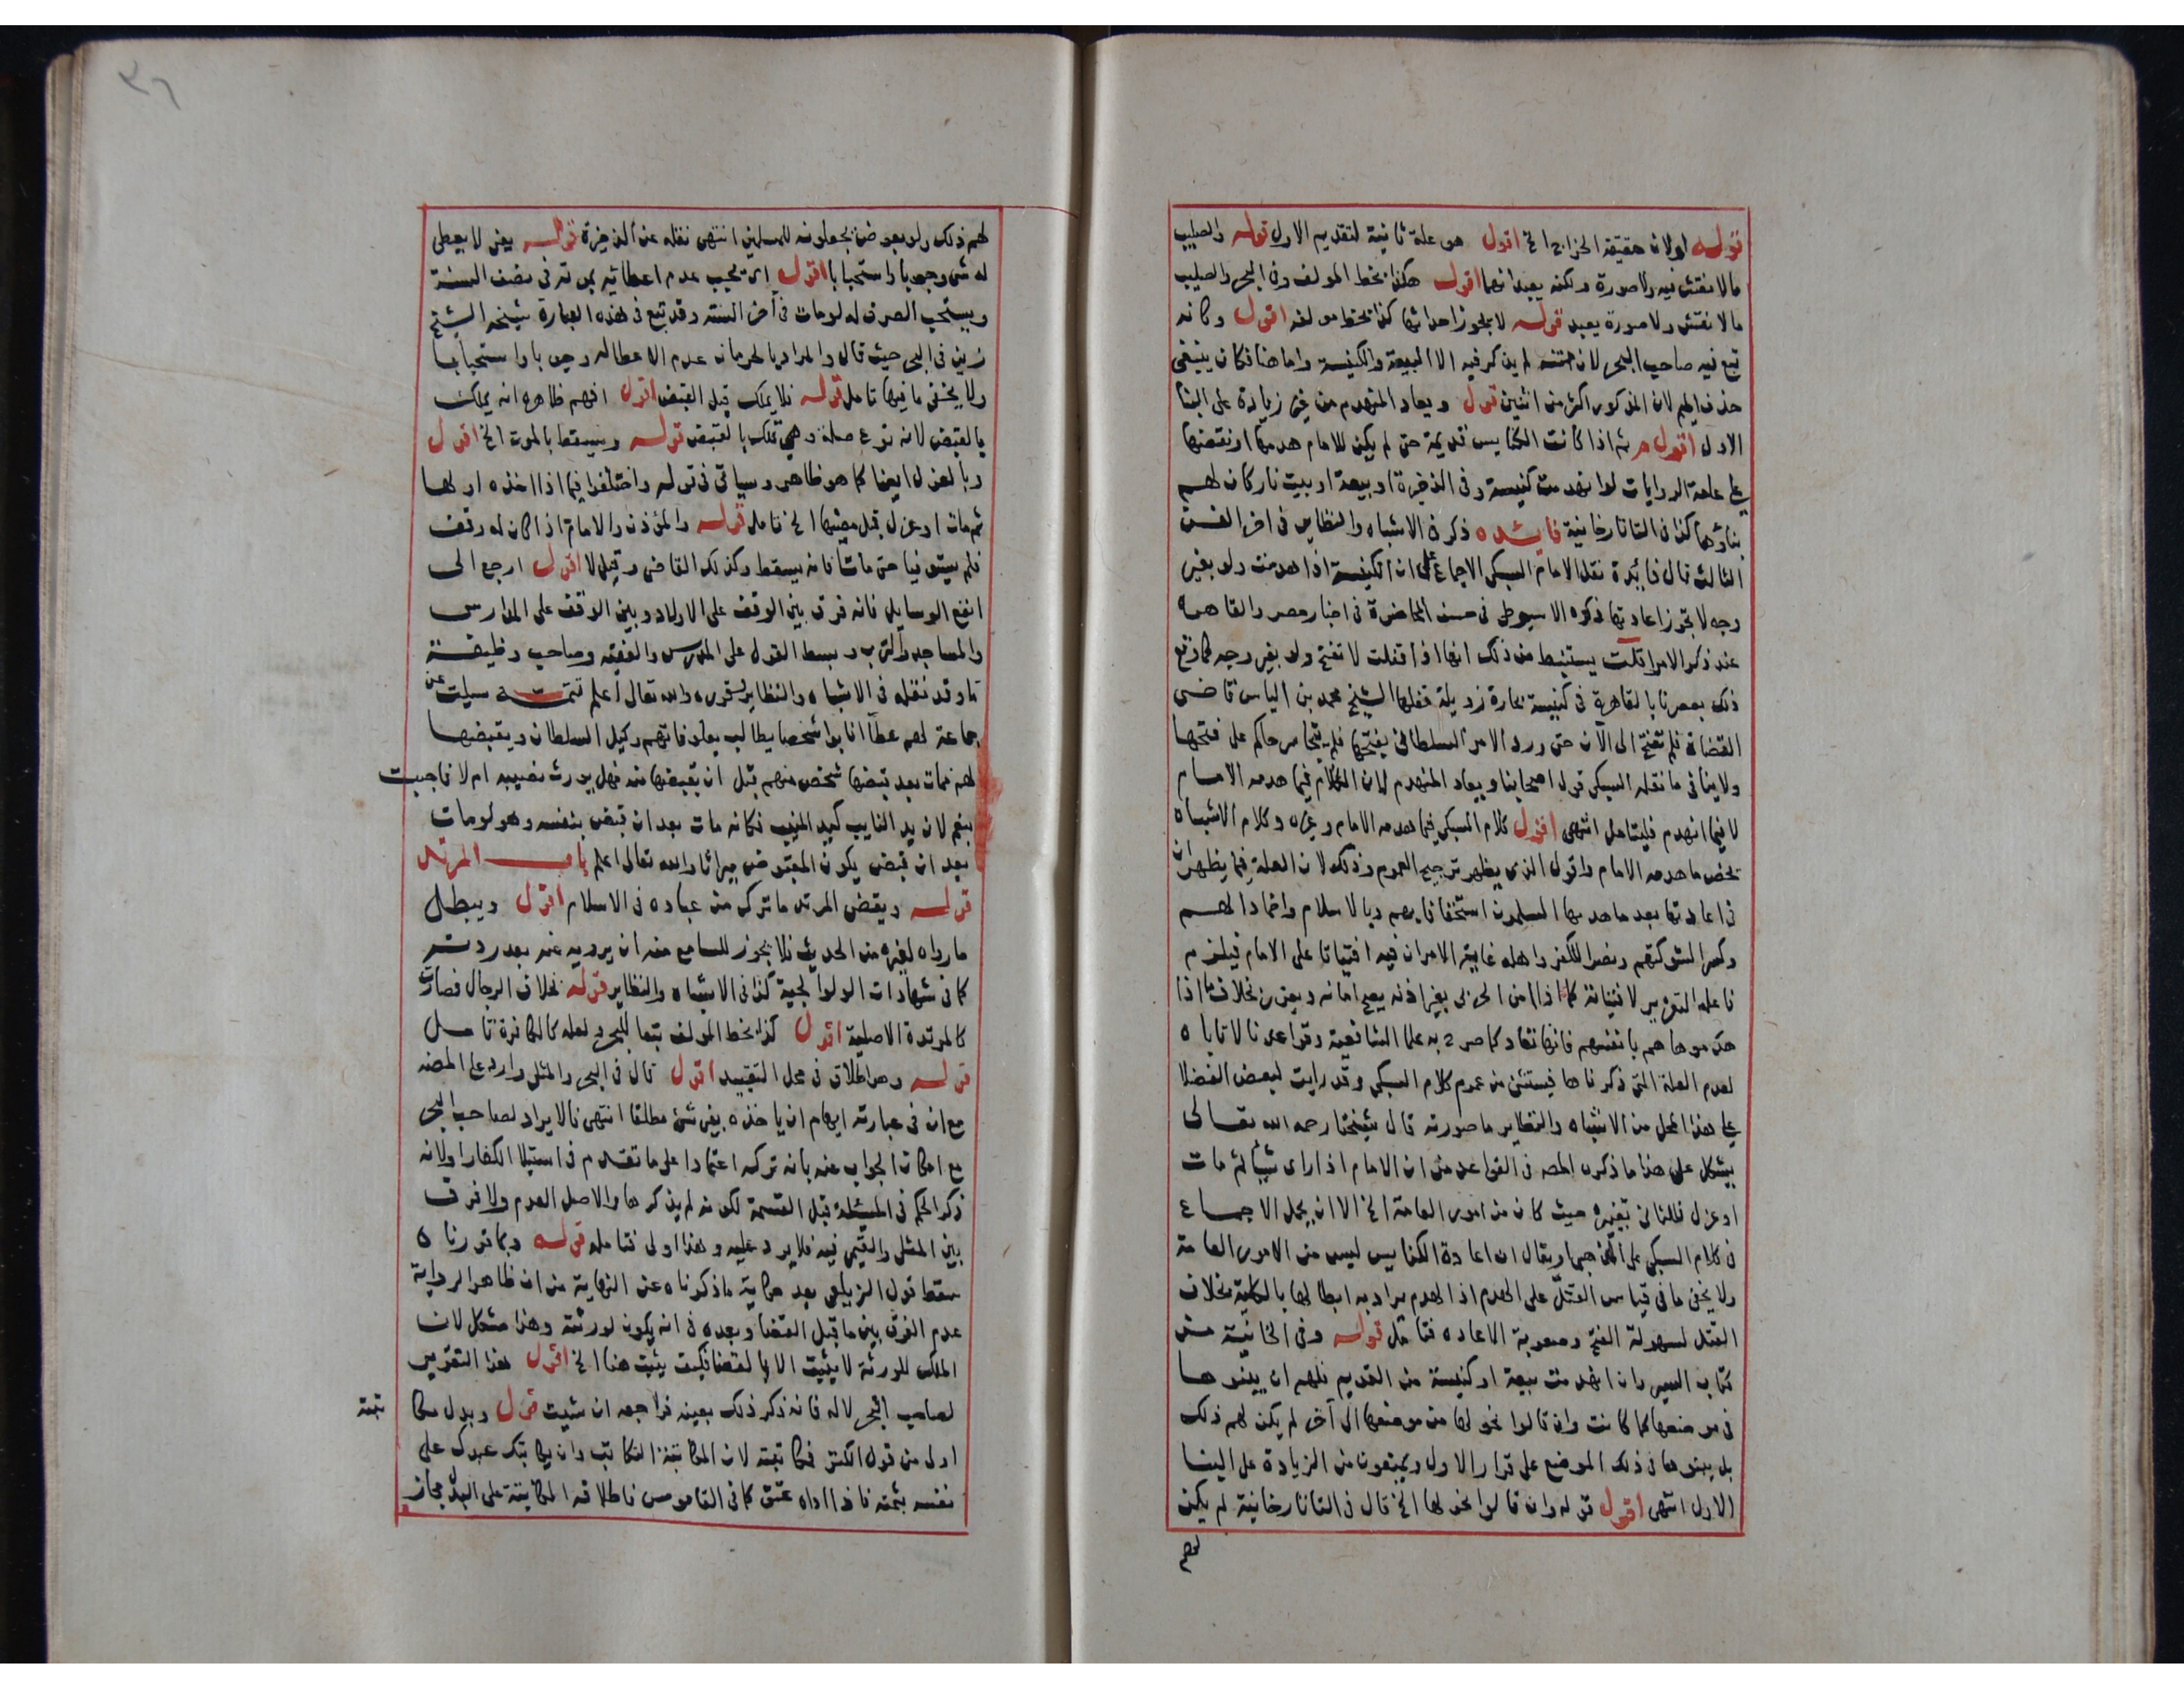 قوله اولان حقيقة الخراج الخ اقول هو علة ثانية لتقديم الاول قوله والصليب
مالا نقش فيه ولا صورة ولكنه يعبد انتهى اقول هكذا بخط المولف وفي البحر والصليب
مالا نقش ولا صورة يعبد قوله لا يجوز احداثها كذا بخط مولفه اقول وكانه
تبع فيه صاحب البحر لان متنه لم يذكر فيه الا البيعة والكنيسة واما هنا فكان ينبغي
حذف الميم لان المذكور اكثر من اثنين قول ويعاد المنهدم من غير زيادة على البنا
الاول اقول ثم اذا كانت الكنايس قديمة حتى لم يكن للامام هدمها او نقضها
على عامة الروايات لو انهدمت كنيسة وفي الذخيرة او بيعة او بيت نار كان لهم
بناؤها كذا في التاتارخانية فايده ذكر في الاشباه والنظاير في اخر الفن
الثالث قال فائدة نقل الامام السبكي الاجماع على ان الكنيسة اذا هدمت ولو بغير
وجه لا تجوز اعادتها ذكره الاسيوطي في حسن المحاضرة في اخبار مصر والقاهرة
عند ذكر الامرا قلت يستنبط من ذلك انها اذا قفلت لا تفتح ولو بغير وجه كما وقع
ذلك بعصرنا بالقاهرة في كنيسة بحارة زويلة قفلها الشيخ محمد بن الياس قاضي
القضاة فلم تفتح الى الآن حتى ورد الامر السلطاني بفتحها فلم يتجاسر حاكم على فتحها
ولا ينافي ما نقله السبكي قول اصحابنا ويعاد المنهدم لان الكلام فيما هدمه الامام
لا فيما انهدم فليتامل انتهى اقول كلام السبكي فيما هدمه الامام وغيره وكلام الاشباه
يخص ما هدمه الامام واقول الذي يظهر ترجيح العموم وذلك لان العلة فيما يظهر ان
في اعادتها بعد ما هدمها المسلمون استخفافا بهم وبالاسلام واخمادا لهم
وكسرا لشوكتهم ونصرا للكفر واهله غاية الامر ان فيه افتياتا على الامام فيلزم
فاعله التعزير لافتياته كما اذا امن الحربي بغير اذنه يصح امانه ويعزر بخلاف ما اذا
هدموها هم بانفسهم فانها تعاد كما صرح به علما الشافعية وقواعدنا لا تاباه
لعدم العلة التي ذكرناها فيستثنى من عموم كلام السبكي وقد رايت لبعض الفضلا
على هذا المحل من الاشباه والنظاير ما صورته قال شيخنا رحمه الله تعالى
يشكل على هذا ما ذكره المصه في القواعد من ان الامام اذا راى شيأ ثم مات
او عزل فللثاني تغييره حيث كان من امور العامة الخ الا ان يحمل الاجماع
في كلام السبكي على المذهبي او يقال ان اعادة الكنايس ليس من الامور العامة
ولا يخفى ما في قياس القفل على الهدم اذ الهدم يراد به ابطالها بالكلية بخلاف
القفل لسهولة الفتح وصعوبة الاعاده فتامل قوله وفي الخانية من
كتاب السير وان انهدمت بيعة او كنيسة من القديم فلهم ان يبنوها
في موضعها كما كانت وان قالوا نحولها من موضعها الى آخر لم يكن لهم ذلك
بل يبنوها في ذلك الموضع على قرار الاول ويمنعون من الزيادة على البنا
الاول انتهى اقول قوله وان قالوا نحولها الخ قال في التاتارخانية لم يكن
لهم
٣٦
لهم ذلك ولو بعوض يجعلونه للمسلمين انتهى نقله عن الذخيرة قوله يعني لا يعطى
له شي وجوبا واستحبابا اقول اي يجب عدم اعطائه بموته في نصف السنة
ويستحب الصرف له لو مات في آخر السنة وقد تبع في هذه العبارة شيخه الشيخ
زين في البحر حيث قال والمراد بالحرمان عدم الاعطا له وجوبا واستحبابا
ولا يخفى ما فيها تامل قوله فلا يملك قبل القبض اقول افهم ظاهره انه يملك
بالقبض لانه نوع صلة وهي تملك بالقبض قوله ويسقط بالموت الخ اقول
وبالعزل ايضا كما هو ظاهر وسياتي في قوله واختلفوا فيما اذا اخذه اولها
ثم مات او عزل قبل مضيها الخ تامل قوله والمؤذن والامام اذا كان له وقف
فلم يستوفيا حتى ماتا فانه يسقط وكذلك القاضي وقيل لا اقول ارجع الى
انفع الوسايل فانه فرق بين الوقف على الاولاد وبين الوقف على المدارس
والمساجد والترب وبسط القول على المدرس والفقيه وصاحب وظيفة
ما وقد نقله في الاشباه والنظاير وقرره والله تعالى اعلم تتمة سيلت عن
جماعة لهم عطا انابوا شخصا يطالب بعلوفاتهم وكيل السلطان ويقبضها
لهم فمات بعد قبضها شخص منهم قبل ان يقبضها منه فهل يورث نصيبه ام لا فاجبت
بنعم لان يد النايب كيد المنيب فكانه مات بعد ان قبض بنفسه وهو لو مات
بعد ان قبض يكون المقبوض ميراثا والله تعالى اعلم باب المرتد
قوله ويقضي المرتد ما ترك من عباده في الاسلام اقول ويبطل
ما رواه لغيره من الحديث فلا يجوز للسامع منه ان يرويه عنه بعد ردته
كما في شهادات الولوالجية كذا في الاشباه والنظاير قوله بخلاف الرجال فصارت
كالمرتدة الاصلية اقول كذا بخط المولف تبعا للبحر ولعله كالكافرة تامل
قوله وهو اطلاق في محل التقييد اقول قال في البحر والمثلي وارد على المصه
مع ان في عبارته ايهام ان ياخذه بغير شئ مطلقا انتهى فالايراد لصاحب البحر
مع امكان الجواب عنه بانه تركه اعتمادا على ما تقدم في استيلا الكفار او لانه
ذكر الحكم في المسئلة قبل القسمة لكونه لم يذكرها والاصل العدم ولا فرق
بين المثلي والقيمي فيه فلا يرد عليه وهذا اولى فتامله قوله وبما قررناه
سقط قول الزيلعي بعد حكاية ما ذكرناه عن النهاية من ان ظاهر الرواية
عدم الفرق بين ما قبل القضا وبعده في انه يكون لورثته وهذا مشكل لان
الملك للورثة لا يثبت الا بالقضا فكيف يثبت هنا الخ اقول هذا التقرير
لصاحب البحر لا له فانه ذكر ذلك بعينه فراجعه ان شيت قول وبدل مكا
تبته
اولى من قول الكنز فكاتبته لان المكاتبة التكاتب وان يكاتبك عبدك على
نفسه بثمنه فاذا اداه عتق كما في القاموس فاطلاقه المكاتبة على البدل مجاز